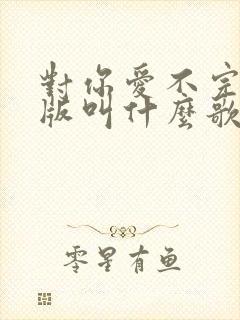 對你愛不完
版叫什麼歌
零星有鱼